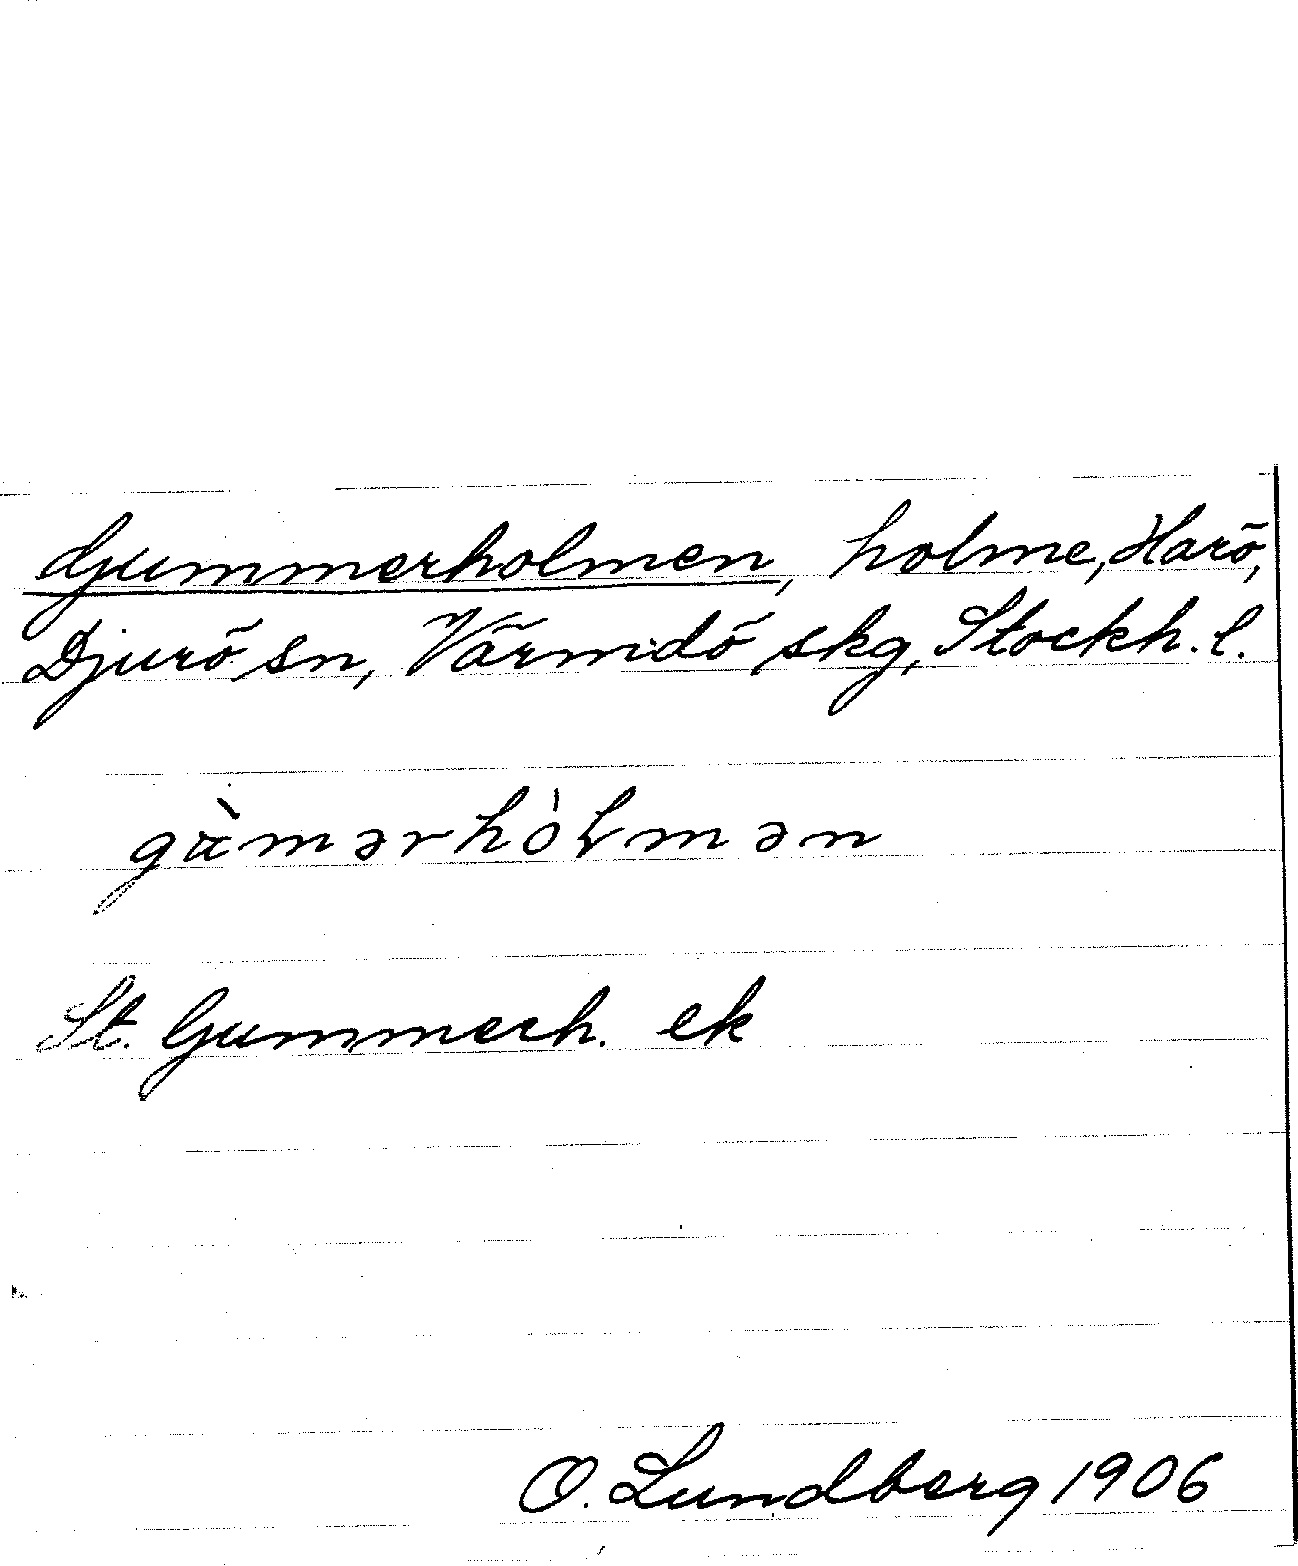 Gummerholmen, holme, Harö,
Djurö sn, Värmdö skg, Stockh. l.
gùmərhòłmən
St. Gummerh. ek
O. Lundberg 1906